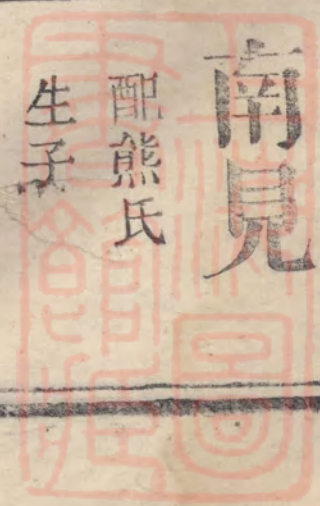 南見
配熊氏
生子